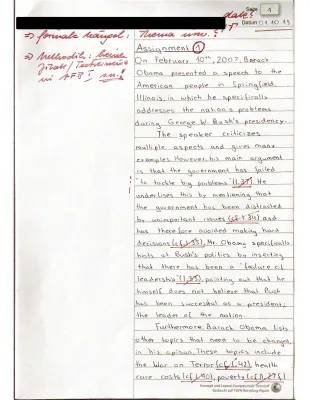 Seite 1
date!
Datum 01.10.19
=> formale Mängel: Thema usw.?
=> Methodik: keine
Assignment 1
On February 10th, 2007, Barack
Obama presented a speech to the
American people in Springfield,
Illinois, in which he specifically
addresses the nation's problems
during George W. Bush's presidency.
The speaker criticizes
multiple aspects and gives many
examples. However, his main argument
is that the government has failed
"to tackle big problems" (l.37). He
underlines this by mentioning that
the government has been distracted
by unimportant issues (cf. l.34) and
has therefore avoided making hard
decisions (cf. l.35). Mr. Obama specifically
hints at Bush's politics by inserting
that there has been a "failure of
leadership" (l.33), pointing out that he
himself does not believe that Bush
has been successful as a president,
the leader of the nation.
Furthermore, Barack Obama lists
other topics that need to be changed
in his opinion. These topics include
the War on Terror (cf. l.42), health
care costs (cf. l.40), poverty